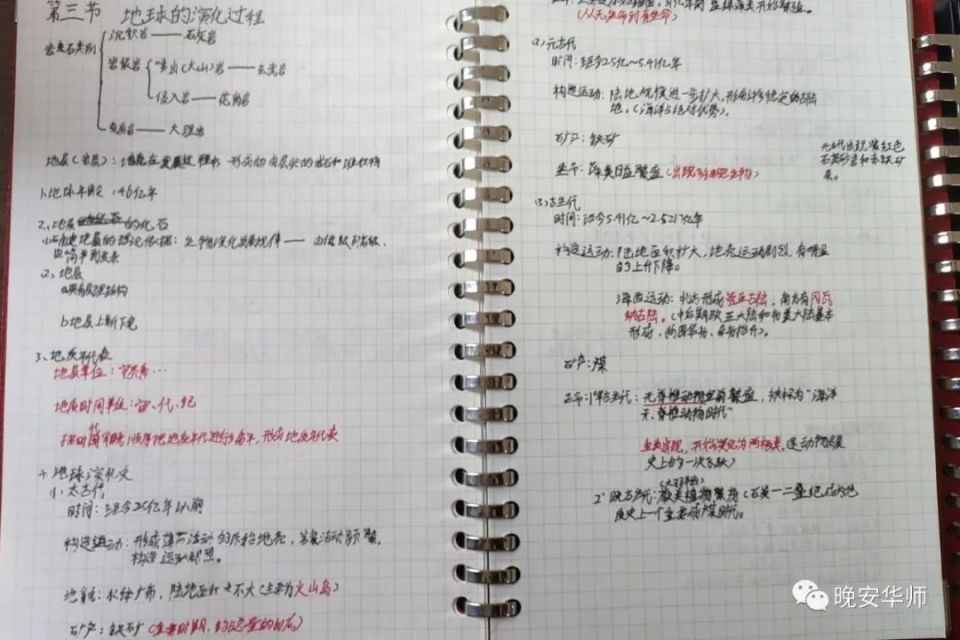 第三节 地球的演化过程
岩类石类别
沉积岩——石灰岩
岩浆岩
喷出(火山)岩——玄武岩
侵入岩——花岗岩
变质岩——大理岩
地层(岩层):
1.地球年龄:46亿年
2.地层 的化石
(1)构建地层的理论依据:生物演化发展规律——由低级到高级,
由简单到复杂
(2)地层
a.具有层理结构
b.地层上新下老
3、地质年代表
地层单位:宇界系…
地质时间单位:宙、代、纪
形成地质年代表
4.地球演化史
(1)太古代
时间:距今25亿年以前
构造运动:形成薄而活动的原始地壳,岩浆活动频繁,
构造运动
地貌:水体广布,陆地面积 不大(主要为火山岛)
矿产:铁矿(重要时期,
(从无生命到有生命)
(2)元古代
时间:距今25亿~5.41亿年
构造运动:陆地规模进一步扩大,形成许多稳定的古陆
地。(海洋占绝对优势)
矿产:铁矿
生命:藻类日益繁盛(出现多细胞生物)
元古代出现紫红色
石英砂岩和赤铁矿
层。
(3)古生代
时间:距今5.41亿~2.5217亿年
构造运动:陆地面积扩大,地壳运动剧烈,有明显
的上升下降。
海西运动:北方形成劳亚古陆,南方有冈瓦
纳古陆。(中后期欧亚大陆和北美大陆基本
形成,
矿产:煤
生命:1°早古生代:无脊椎动物空前繁盛,被称为“海洋
无脊椎动物时代”
鱼类出现,开始演化为两栖类,是动物发展
史上的一次飞跃)
2°晚古生代:蕨类植物繁茂(石炭—二叠纪成为地
质史上一个重要成煤时代。
晚安华师